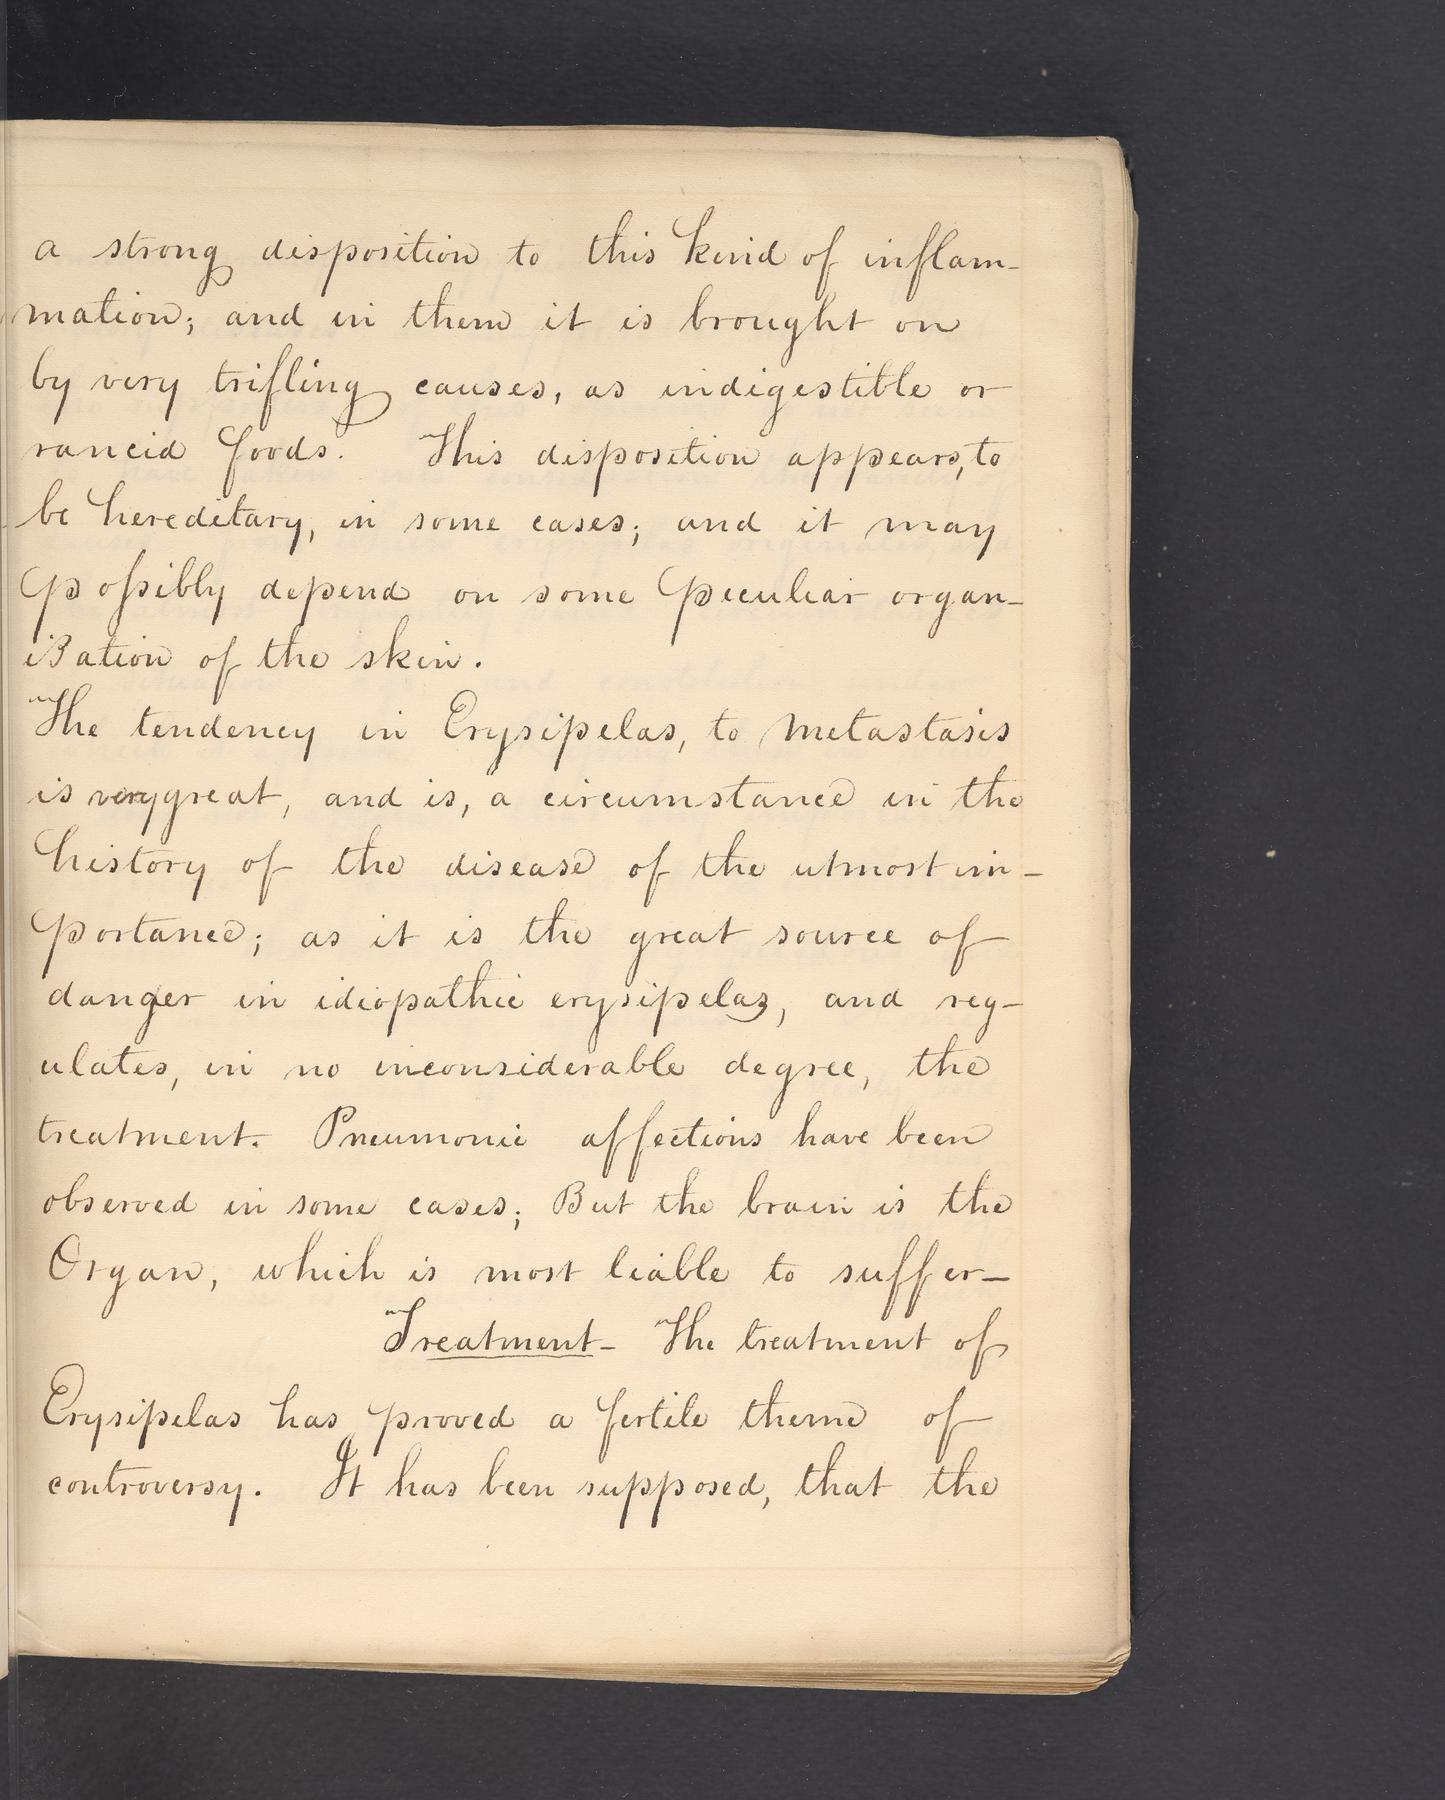 a strong disposition to this kind of inflam-
mation; and in them it is brought on
by very trifling causes, as indigestible or
rancid foods. This disposition appears, to
be hereditary, in some cases; and it may
possibly depend on some peculiar organ-
ization of the skin.
The tendency in Erysipelas, to metastasis
is very great, and is, a circumstance in the
history of the disease of the utmost im-
portance; as it is the great source of
danger in idiopathic erysipelas, and reg-
ulates, in no inconsiderable degree, the
treatment. Pneumonic affections have been
observed in some cases; But the brain is the
Organ, which is most liable to suffer-
Treatment- The treatment of
Erysipelas has proved a fertile theme of
controversy. It has been supposed, that the